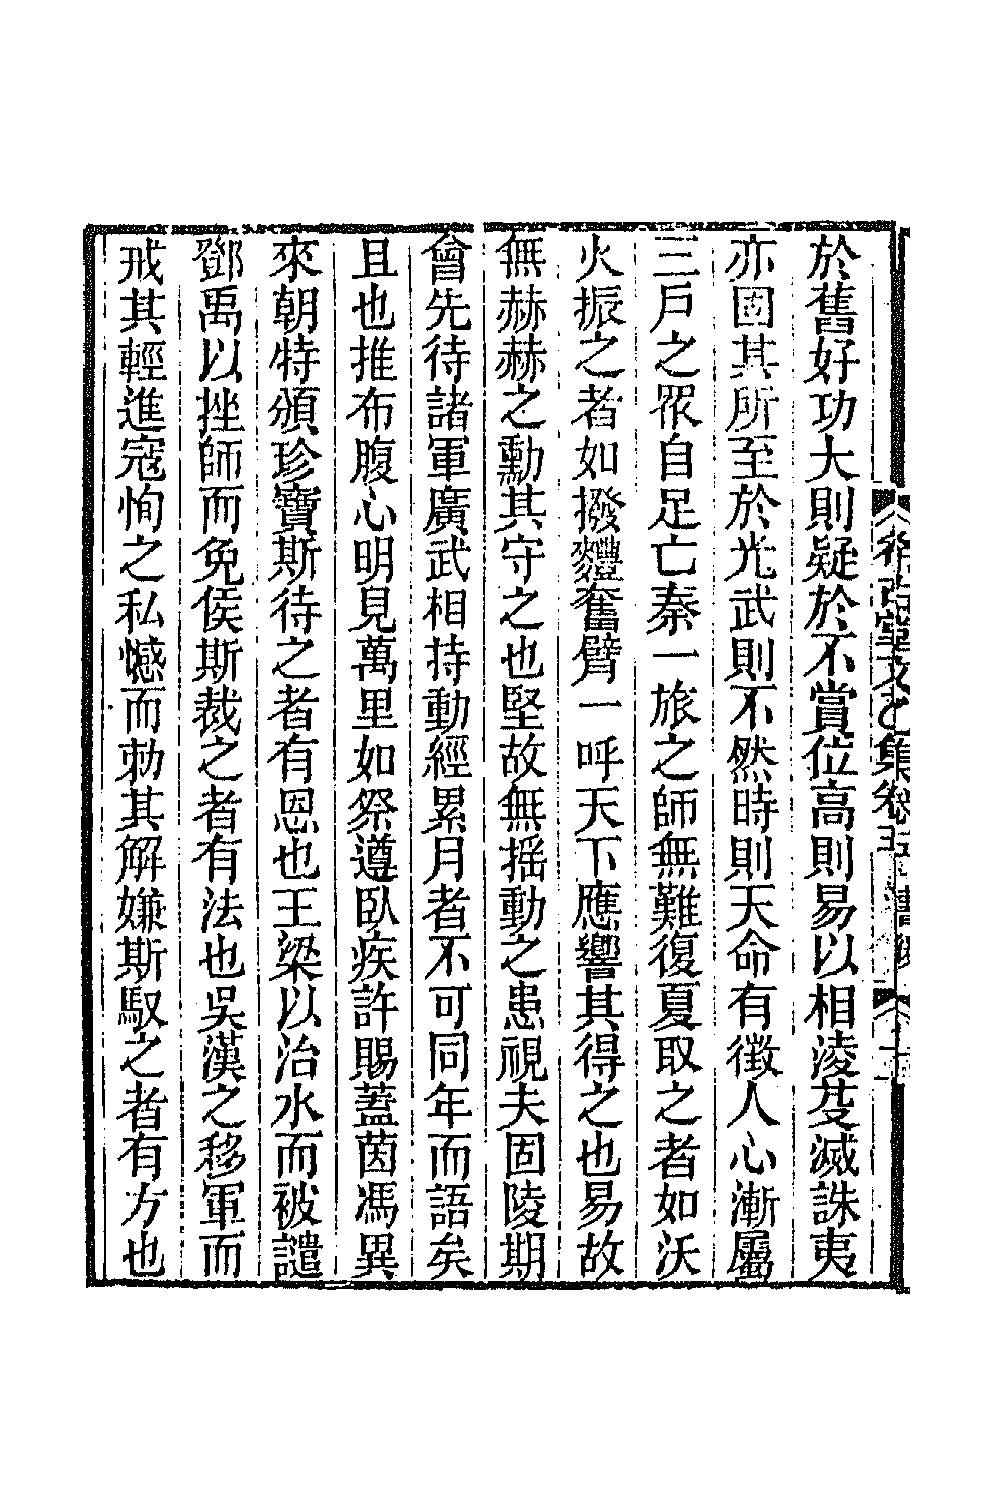 於舊好功大則疑於不賞位高則易以相淩芟滅誅夷
亦固其所至於光武則不然時則天命有徵人心漸屬
三戶之眾自足亡秦一旅之師無難復夏取之者如沃
火振之者如撥麷奮臂一呼天下應響其得之也易故
無赫赫之勳其守之也堅故無搖動之患視夫固陵期
會先待諸軍廣武相持動經累月者不可同年而語矣
且也推布腹心明見萬里如祭遵臥疾許賜蓋茵馮異
來朝特頒珍寶斯待之者有恩也王梁以治水而被譴
鄧禹以挫師而免侯斯裁之者有法也吳漢之移軍而
戒其輕進寇恂之私憾而勅其解嫌斯馭之者有方也
希古堂文乙集卷五 書後